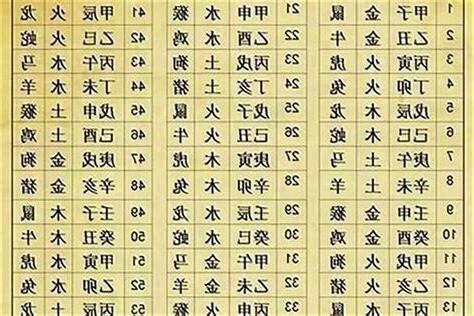 1 甲子 金 鼠 21 甲申 水 猴 41 甲辰 火 龙
2 乙丑 金 牛 22 乙酉 水 鸡 42 乙巳 火 蛇
3 丙寅 火 虎 23 丙戌 土 狗 43 丙午 水 马
4 丁卯 火 兔 24 丁亥 土 猪 44 丁未 水 羊
5 戊辰 木 龙 25 戊子 火 鼠 45 戊申 土 猴
6 己巳 木 蛇 26 己丑 火 牛 46 己酉 土 鸡
7 庚午 土 马 27 庚寅 木 虎 47 庚戌 金 狗
8 辛未 土 羊 28 辛卯 木 兔 48 辛亥 金 猪
9 壬申 金 猴 29 壬辰 水 龙 49 壬子 木 鼠
10 癸酉 金 鸡 30 癸巳 水 蛇 50 癸丑 木 牛
11 甲戌 火 狗 31 甲午 金 马 51 甲寅 水 虎
12 乙亥 火 猪 32 乙未 金 羊 52 乙卯 水 兔
13 丙子 水 鼠 33 丙申 火 猴 53 丙辰 土 龙